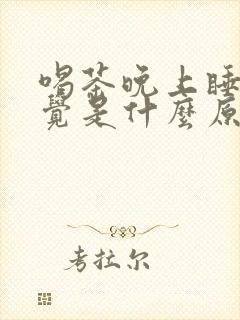 喝茶晚上睡
覺是什麼原
考拉尔